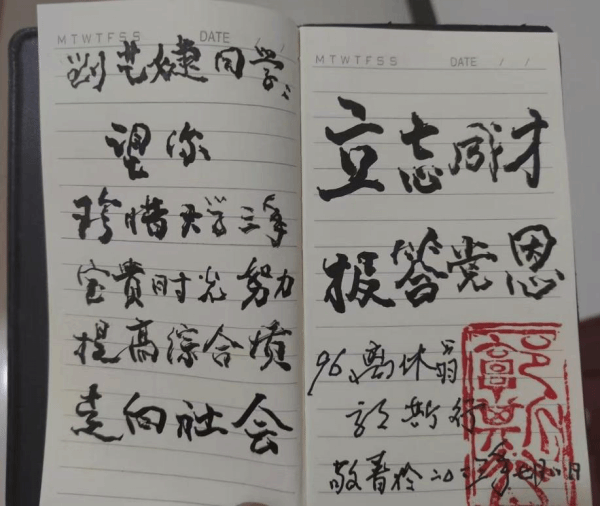 MTWTFSS DATE / /
刘艺婕同学:
望你
珍惜大学三年
宝贵时光 努力
提高综合质
走向社会
MTWTFSS DATE / /
立志成才
报答党恩
96 离休翁
敬书于二〇二三年